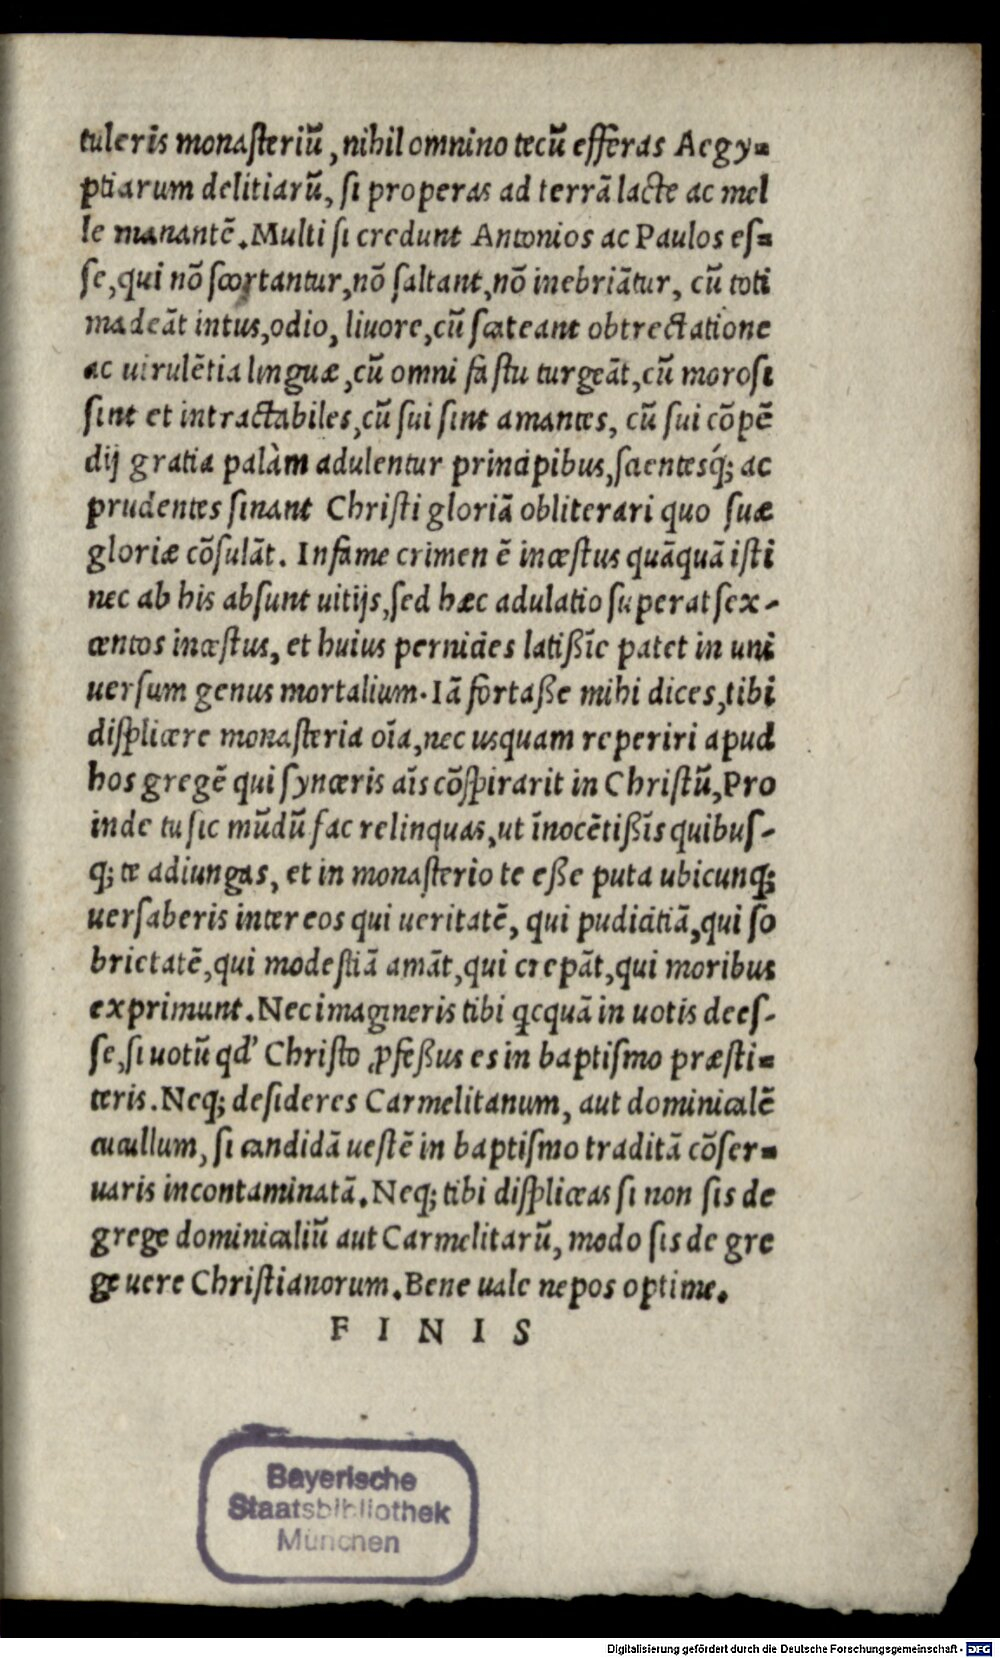 tuleris monaſteriũ, nihil omnino tecũ efferas Aegy-
ptiarum delitiarũ, ſi properas ad terrã lacte ac mel
le manantẽ. Multi ſi credunt Antonios ac Paulos eſ-
ſe, qui nõ ſcortantur, nõ ſaltant, nõ inebriãtur, cũ toti
madeãt intus, odio, liuore, cũ ſcateant obtrectatione
ac uirulẽtia linguæ, cũ omni faſtu turgeãt, cũ moroſi
ſint et intractabiles, cũ ſui ſint amantes, cũ ſui cõpẽ
dij gratia palàm adulentur principibus, ſcientesq́; ac
prudentes ſinant Chriſti gloriã obliterari quo ſuæ
gloriæ cõſulãt. Infame crimen ẽ inceſtus quãquã iſti
nec ab his abſunt uitijs, ſed hæc adulatio ſuperat ſex-
centos inceſtus, et huius pernicies latißĩe patet in uni
uerſum genus mortalium. Iã fortaße mihi dices, tibi
diſplicere monaſteria oĩa, nec usquam reperiri apud
hos gregẽ qui ſynceris aĩs cõſpirarit in Chriſtũ, Pro
inde tu ſic mũdũ fac relinquas, ut ĩnocẽtißĩs quibuſ-
q; te adiungas, et in monaſterio te eße puta ubicunq;
uerſaberis inter eos qui ueritatẽ, qui pudicitiã, qui ſo
brietatẽ, qui modeſtiã amãt, qui crepãt, qui moribus
exprimunt. Nec imagineris tibi qcquã in uotis deeſ-
ſe, ſi uotũ qd' Chriſto ꝓfeßus es in baptiſmo præſti-
teris. Neq; deſideres Carmelitanum, aut dominicalẽ
cucullum, ſi candidã ueſtẽ in baptiſmo traditã cõſer-
uaris incontaminatã. Neq; tibi diſpliceas ſi non ſis de
grege dominicaliũ aut Carmelitarũ, modo ſis de gre
ge uere Chriſtianorum. Bene uale nepos optime.
F I N I S
Bayerische
Staatsbibliothek
München
Digitalisierung gefördert durch die Deutsche Forschungsgemeinschaft - DFG